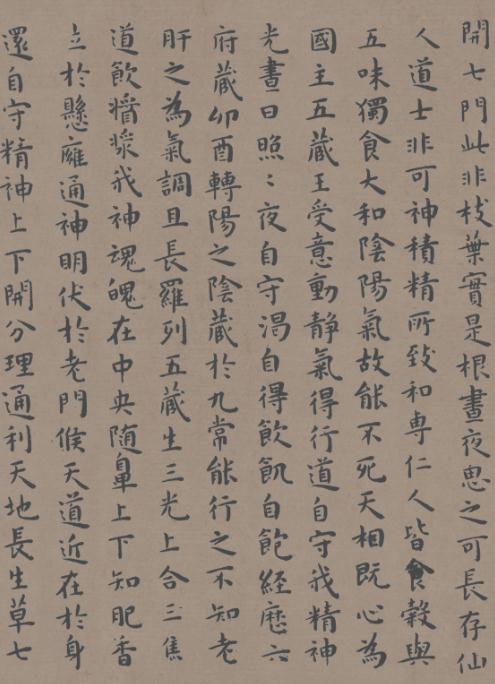 開七門此非枝葉實是根晝夜思之可長存仙
人道士非可神積精所致和專仁人皆食穀與
五味獨食大和陰陽氣故能不死天相既心為
國主五藏王受意動靜氣得行道自守我精神
光晝日照〻夜自守渴自得飲飢自飽經歷六
府藏卯酉轉陽之陰藏於九常能行之不知老
肝之為氣調且長羅列五藏生三光上合三焦
道飲㿻漿我神魂魄在中央随鼻上下知肥香
立於懸癕通神明伏於老門候天道近在於身
還自守精神上下開分理通利天地長生草七